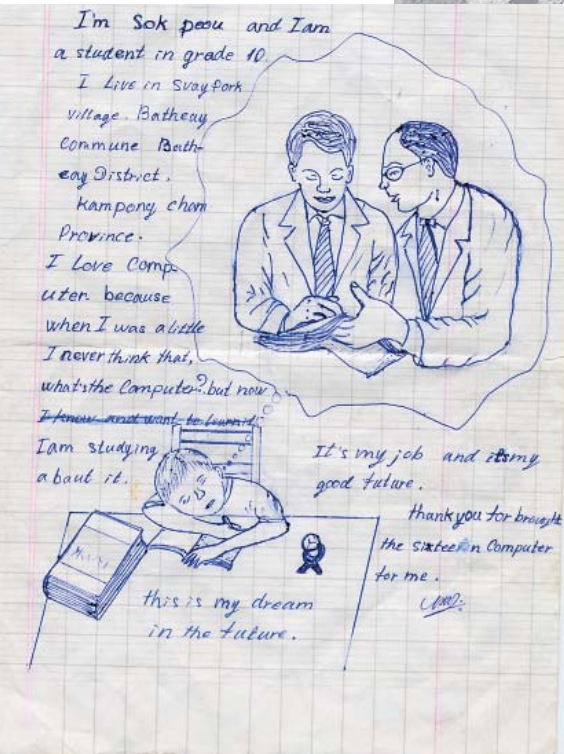 I'm Sok peou and Iam
a student in grade 10.
I Live in Svayfork
village. Batheay
Commune Bath-
eay District.
Kampong cham
Province.
I Love Comp-
uter. because
when I was a little
I never think that,
what's the Computer? but now
I know and want to learn it
I am studying
about it.
It's my job and its my
good future.
thank you for brought
the sixteen Computer
for me.
this is my dream
in the future.